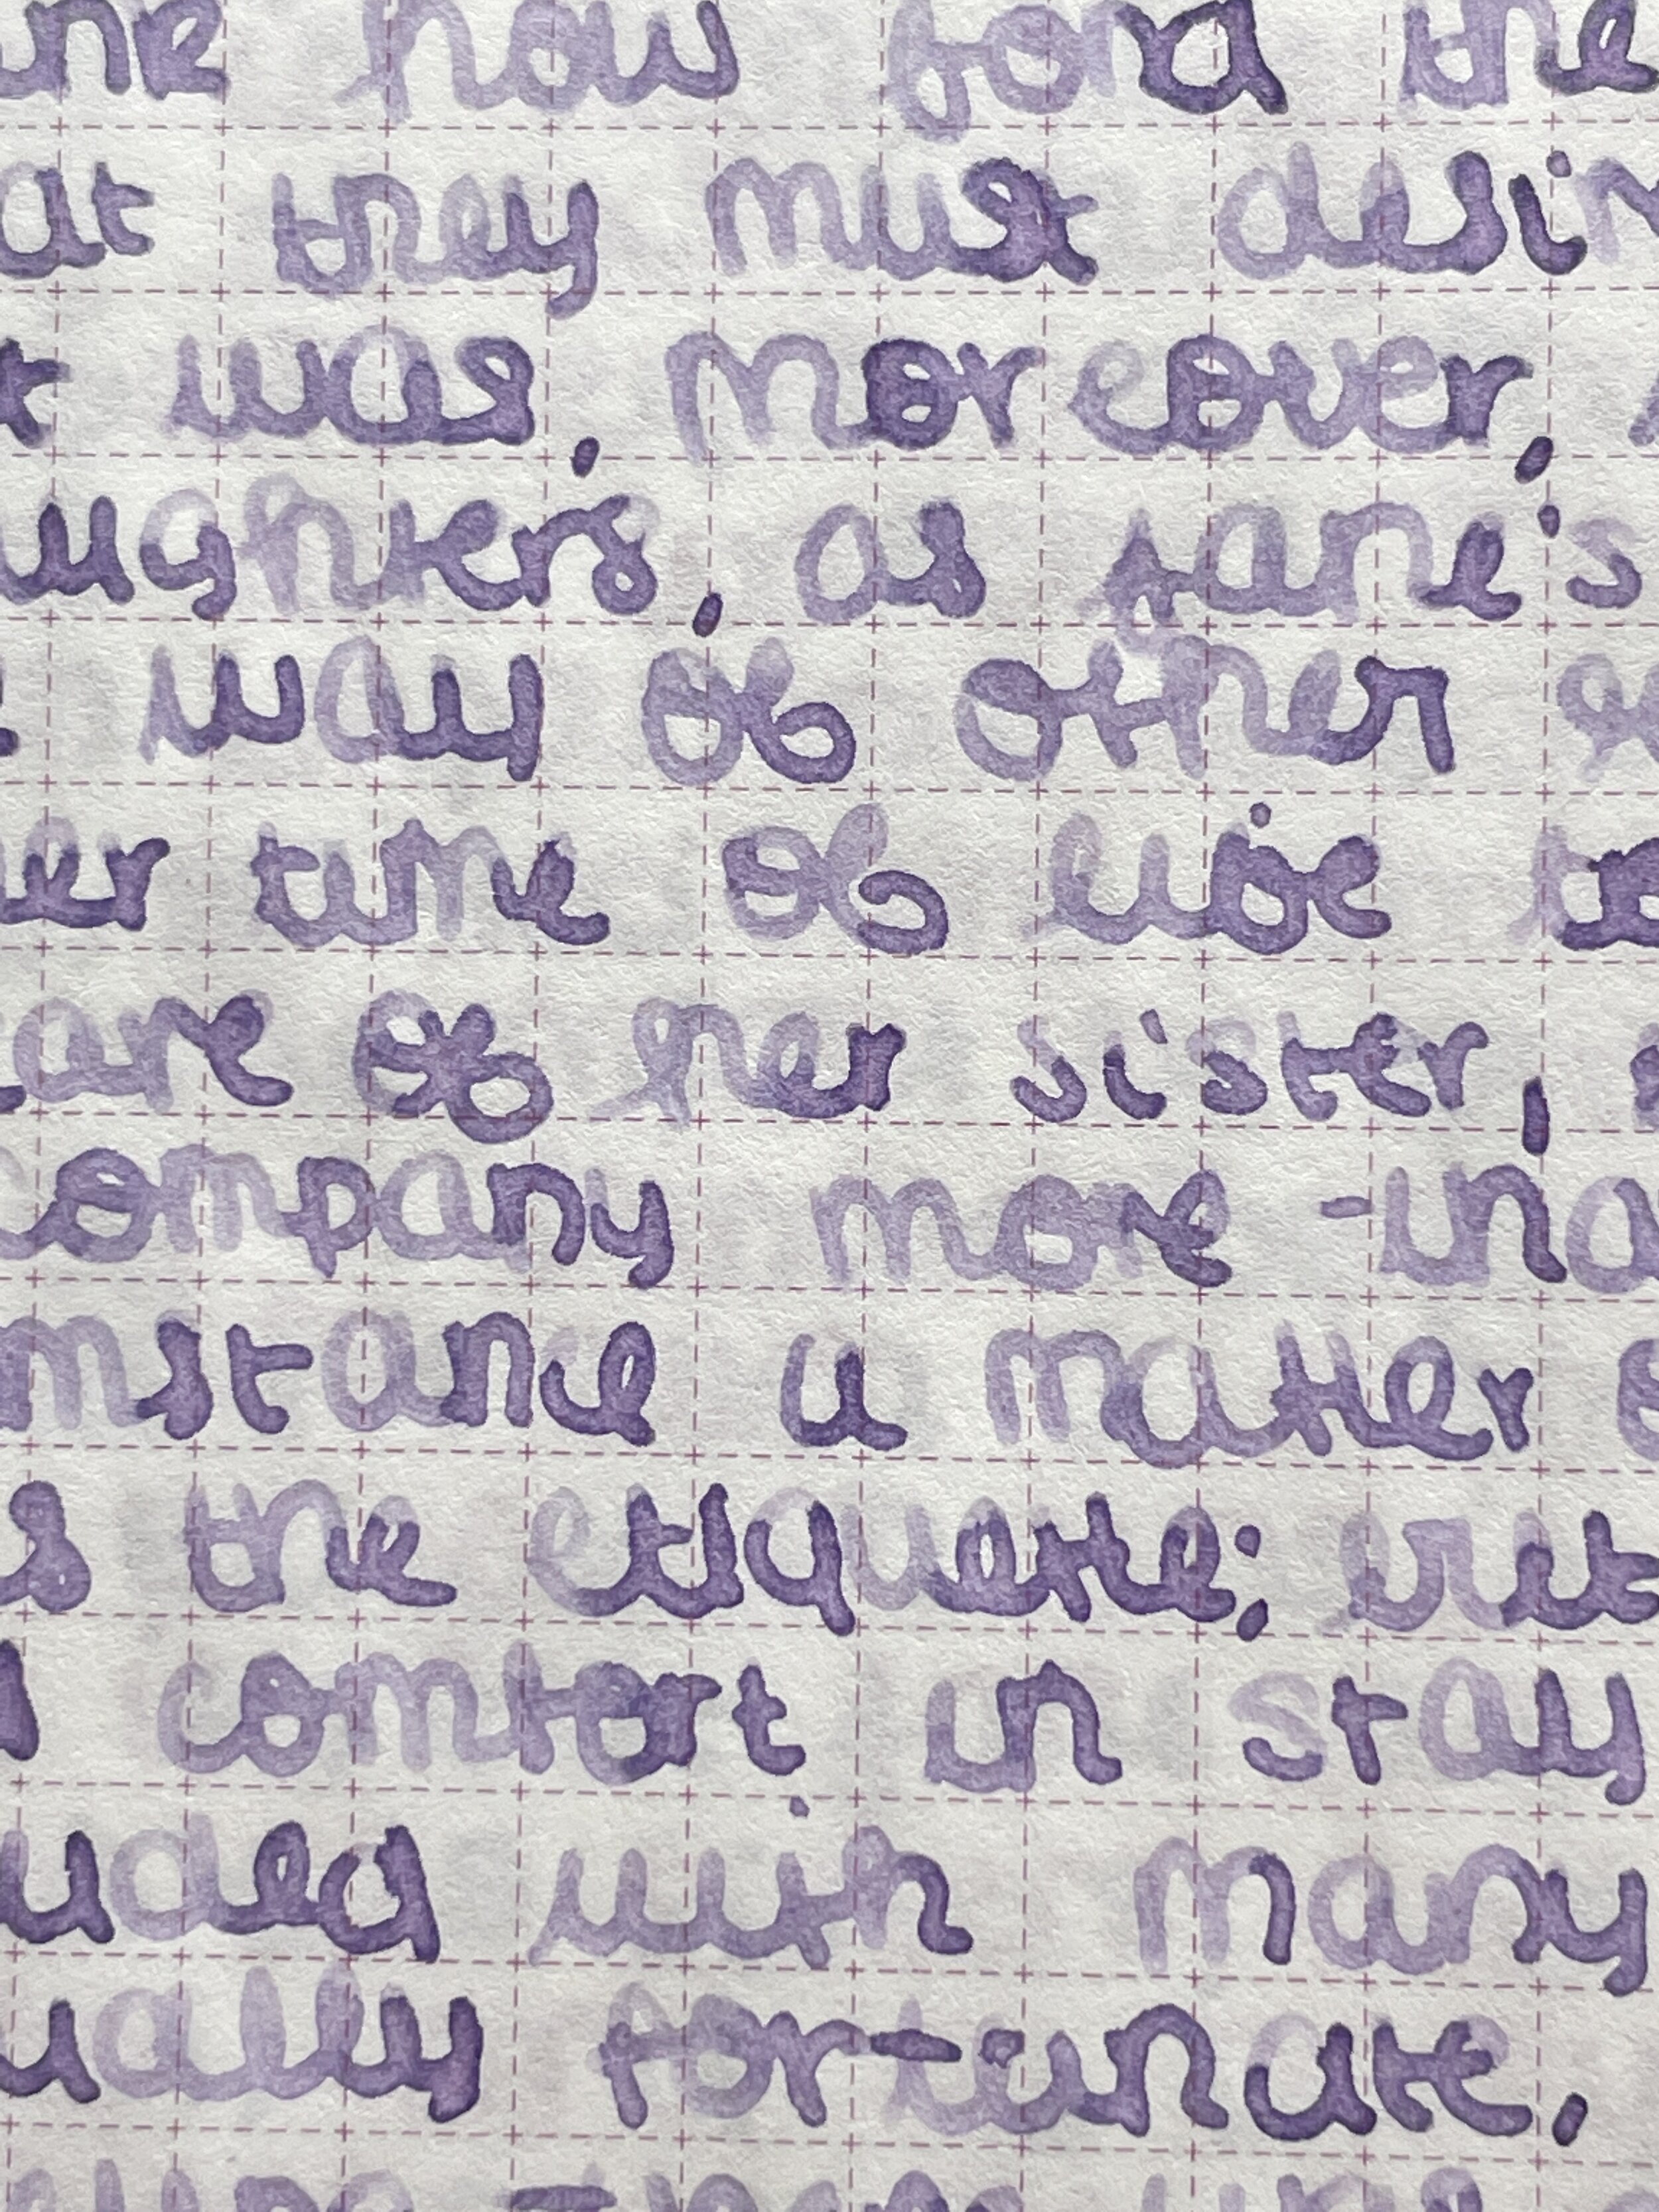 how fond the
at they must
t was, moreover,
ughters, as Jane's
way of other
er time of life
are of her sister,
company more than
mstance a matter
s the etiquette; but
comfort in stay
uded with many
ually fortunate,